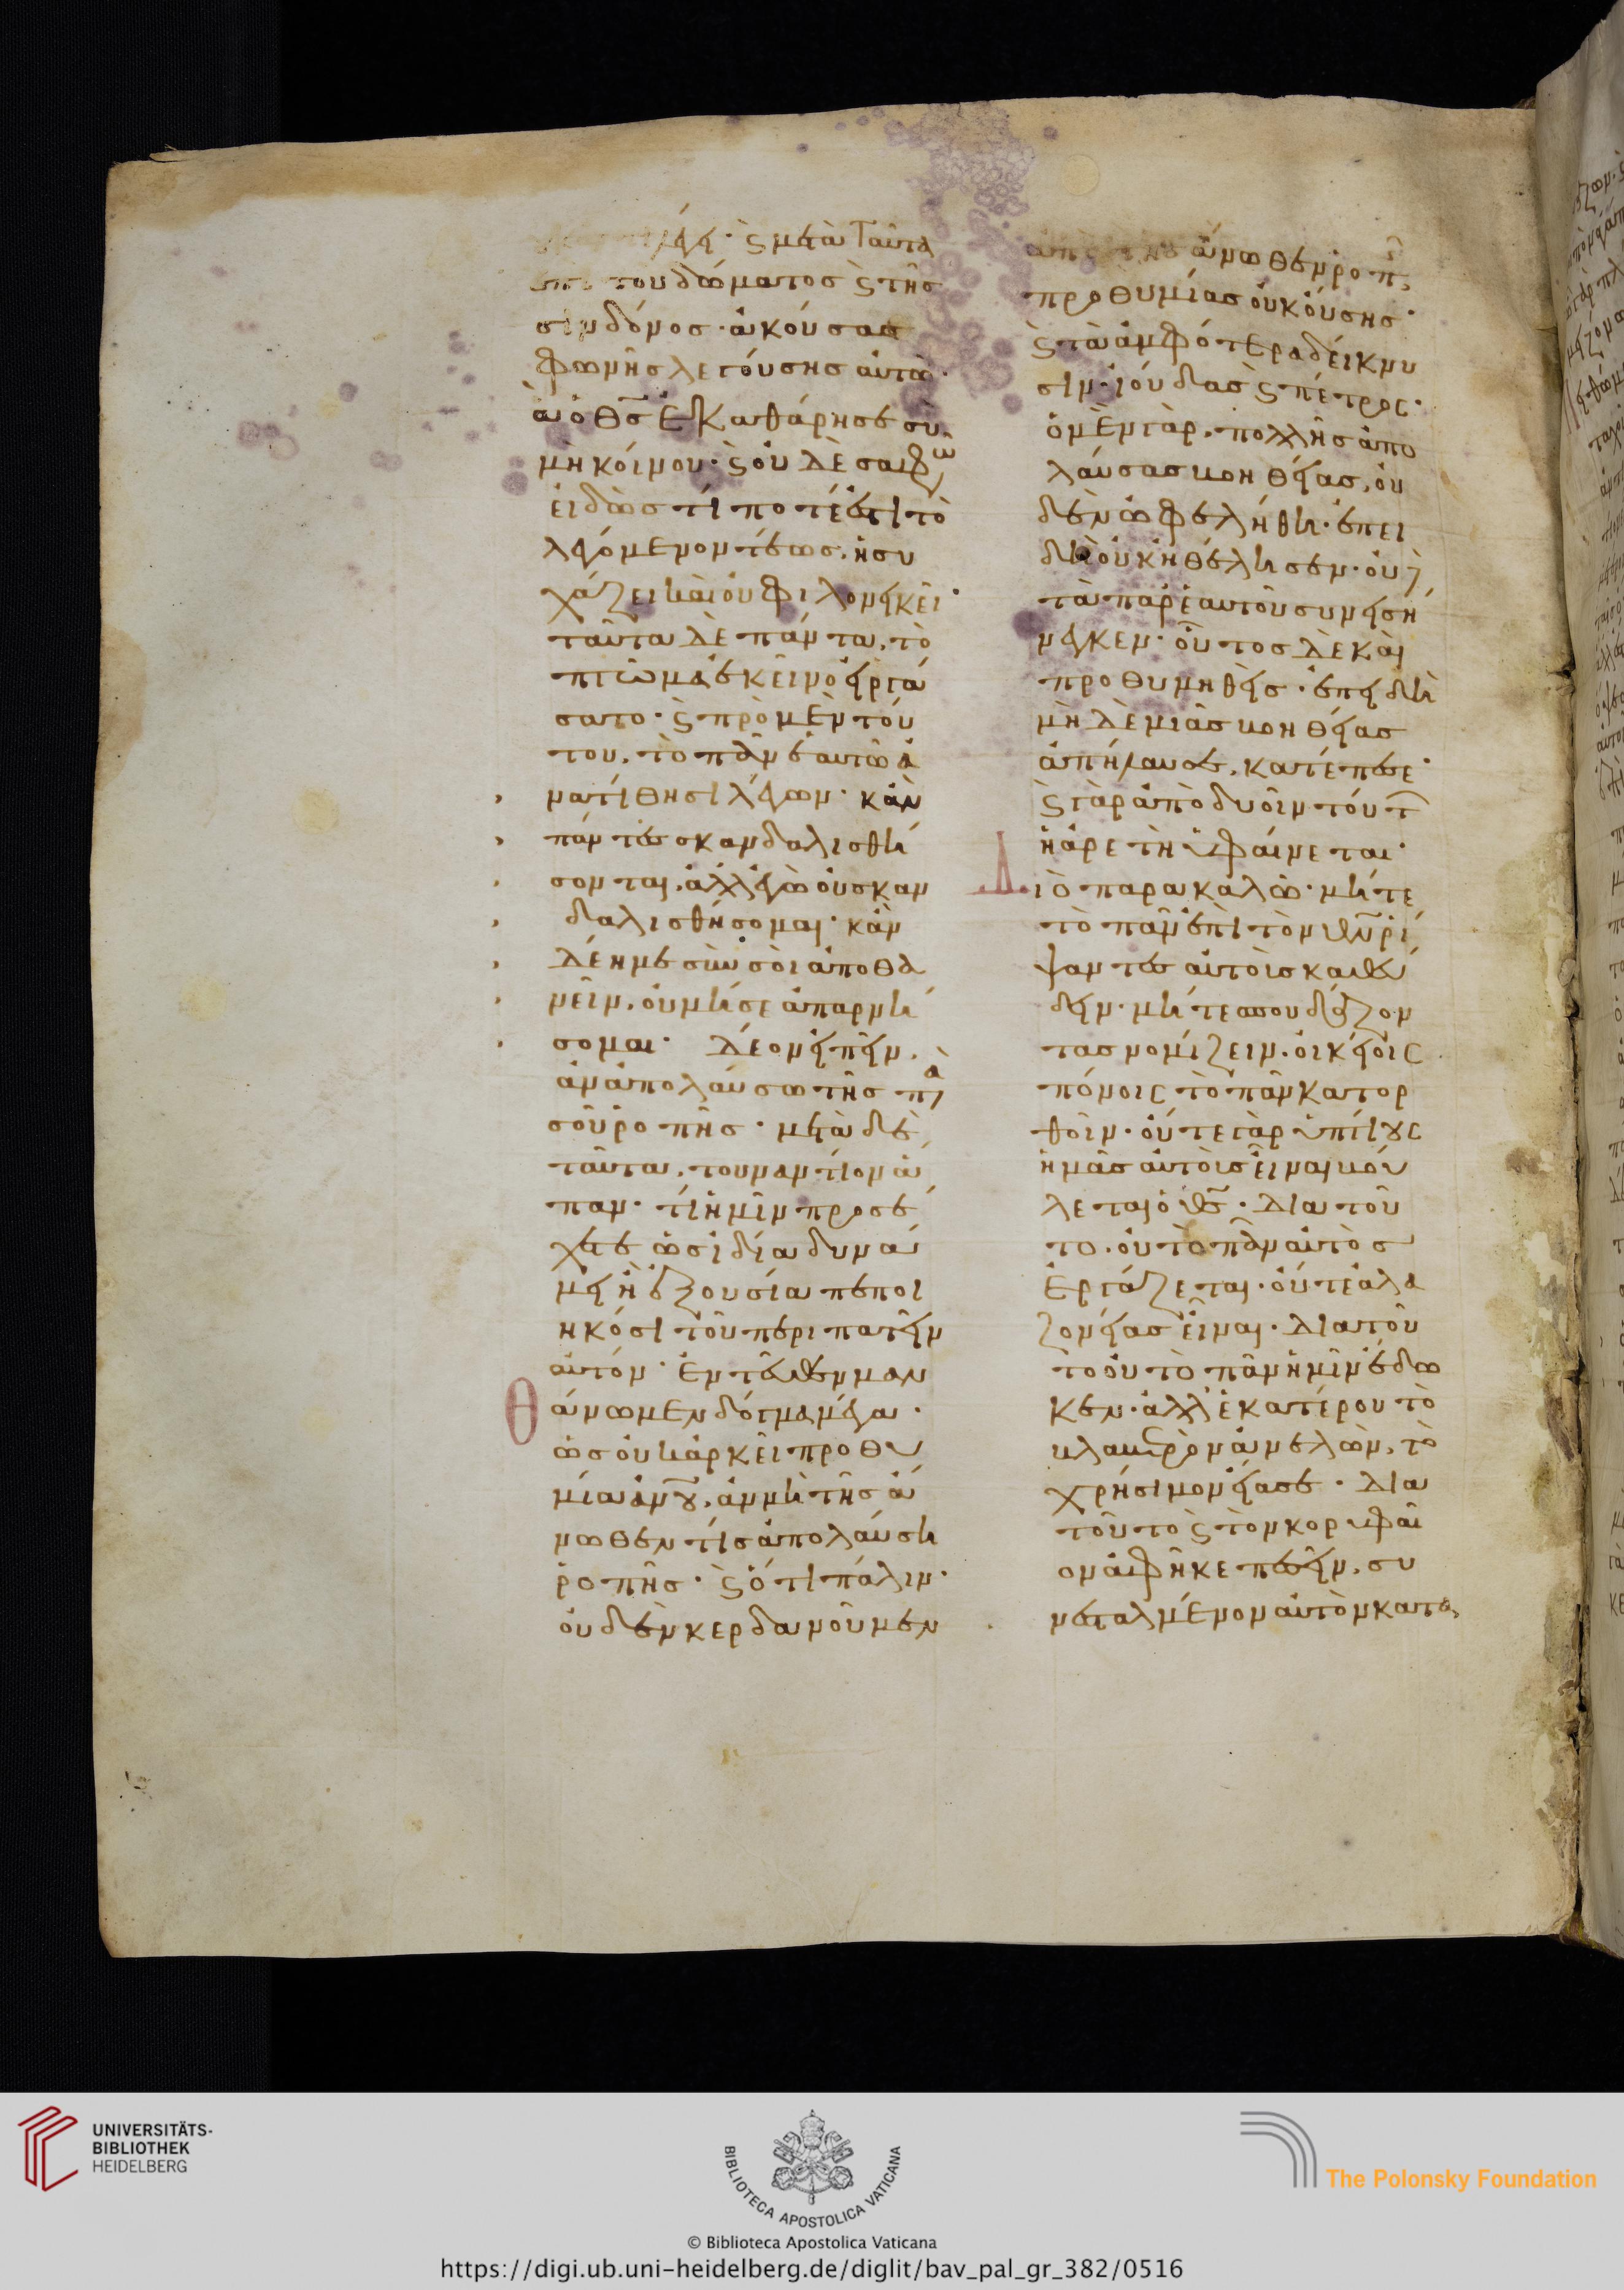 ϛ μετὰ ταῦτα
τοῦ δώματος ϛ τῆς
σινδόνος· ἀκούσας
φωνῆς λεγούσης αὐτῶ·
ἃ ὁ θ̅ς̅ ἐκαθάρησε σὺ
μὴ κοίνου· ϛ οὐδὲ σαφῶ
εἰδὼς τί ποτέ ἐστι τὸ
λεγόμενον τέως, ἡσυ
χάζει καὶ οὐ φιλονεικεῖ·
ταῦτα δὲ πάντα, τὸ
πτῶμα ἐκεῖνο εἰργά
σατο· ϛ πρὸ μὲν τού
του, τὸ πᾶν ἑαυτῶ ἀ
νατίθησι λέγων· κἂν
πάντες σκανδαλισθή
σονται, ἀλλ' ἐγὼ οὐ σκαν
δαλισθήσομαι· κἂν
δέη με σὺν σοὶ ἀποθα
νεῖν, οὐ μή σε ἀπαρνή
σομαι· δέον εἰπεῖν,
ἂν ἀπολαύσω τῆς πὰ
σοῦ ῥοπῆς· μετὰ δὲ
ταῦτα, τουναντίον ἅ
παν· τί ἡμῖν προσέ
χετε ὡς ἰδία δυνά
μει ἢ ἐξουσία πεποι
ηκόσι τοῦ περιπατεῖν
αὐτόν· Ἐντεῦθεν μαν
θάνωμεν δόγμα μέγα·
ὡς οὐκ ἀρκεῖ προθυ
μία ἀν̅ου̅, ἂν μὴ τῆς ἄ
νωθέν τις ἀπολαύση
ῥοπῆς· ϛ ὅτι πάλιν·
οὐδὲν κερδανοῦμεν
ἄνωθεν ῥοπῆ,
προθυμίας οὐκ οὔσης·
ϛ τὰ ἀμφότερα δείκνυ
σιν· ἰούδας ϛ πέτρος·
ὁ μὲν γὰρ, πολλῆς ἀπο
λαύσας βοηθείας, οὐ
δὲν ὠφελήθη· ἐπει
δὴ οὐκ ἠθέλησεν· οὐδὲ
τὰ παρ' ἑαυτοῦ συνεισή
νεγκεν· οὗτος δὲ καὶ
προθυμηθεὶς· ἐπειδὴ
μὴ δεμιᾶς βοηθείας
ἀπήλαυσε, κατέπεσε·
ϛ γὰρ ἀπὸ δυοῖν τούτ
ἡ ἀρετὴ ὑφαίνεται·
Διὸ παρακαλῶ· μήτε
τὸ πᾶν ἐπὶ τὸν θ̅ν̅ ῥί
ψαντες αὐτοὶ καθεύ
δειν· μήτε σπουδάζον
τας νομίζειν· οἰκείοις
πόνοις τὸ πᾶν κατορ
θοῖν· οὔτε γὰρ ὑπτίους
ἡμᾶς αὐτοὺς εἶναι βού
λεται ὁ θ̅ς̅· διὰ τοῦ
το· οὐ τὸ πᾶν αὐτὸς
ἐργάζεται· οὔτε ἀλα
ζονείας εἶναι· διὰ τοῦ
το οὐ τὸ πᾶν ἡμῖν ἔδω
κεν· ἀλλ' ἑκατέρου τὸ
βλαβερὸν ἀνελὼν, τὸ
χρήσιμον εἴασε· διὰ
τοῦτο ϛ τὸν κορυφαῖ
ον ἀφῆκε πεσεῖν, συ
νεσταλμένον αὐτὸν κατα
UNIVERSITÄTS-
BIBLIOTHEK
HEIDELBERG
BIBLIOTECA APOSTOLICA VATICANA
The Polonsky Foundation
© Biblioteca Apostolica Vaticana
https://digi.ub.uni-heidelberg.de/diglit/bav_pal_gr_382/0516